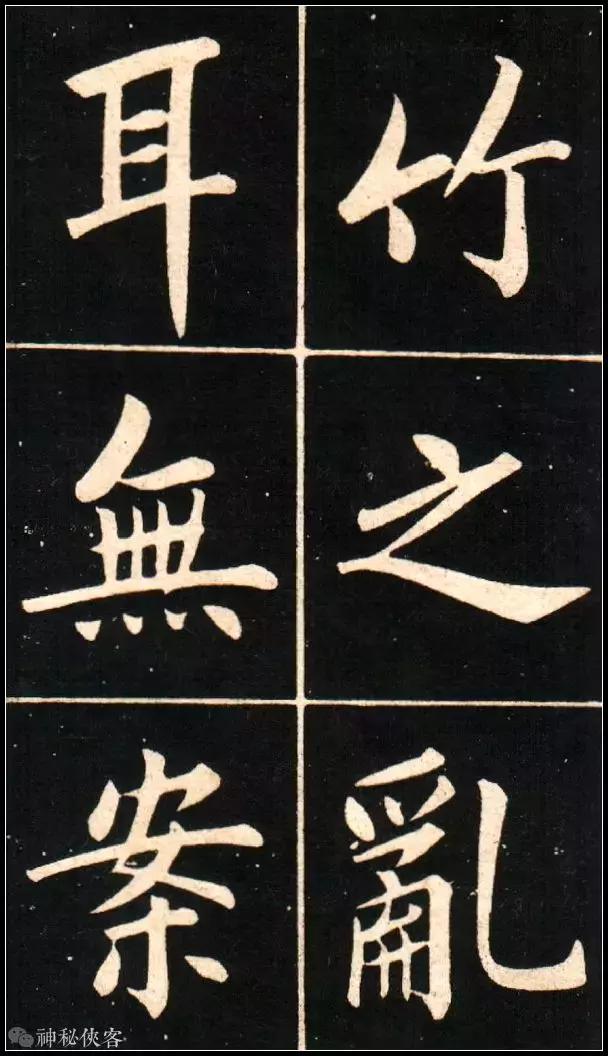 竹之亂
耳無案
神秘俠客